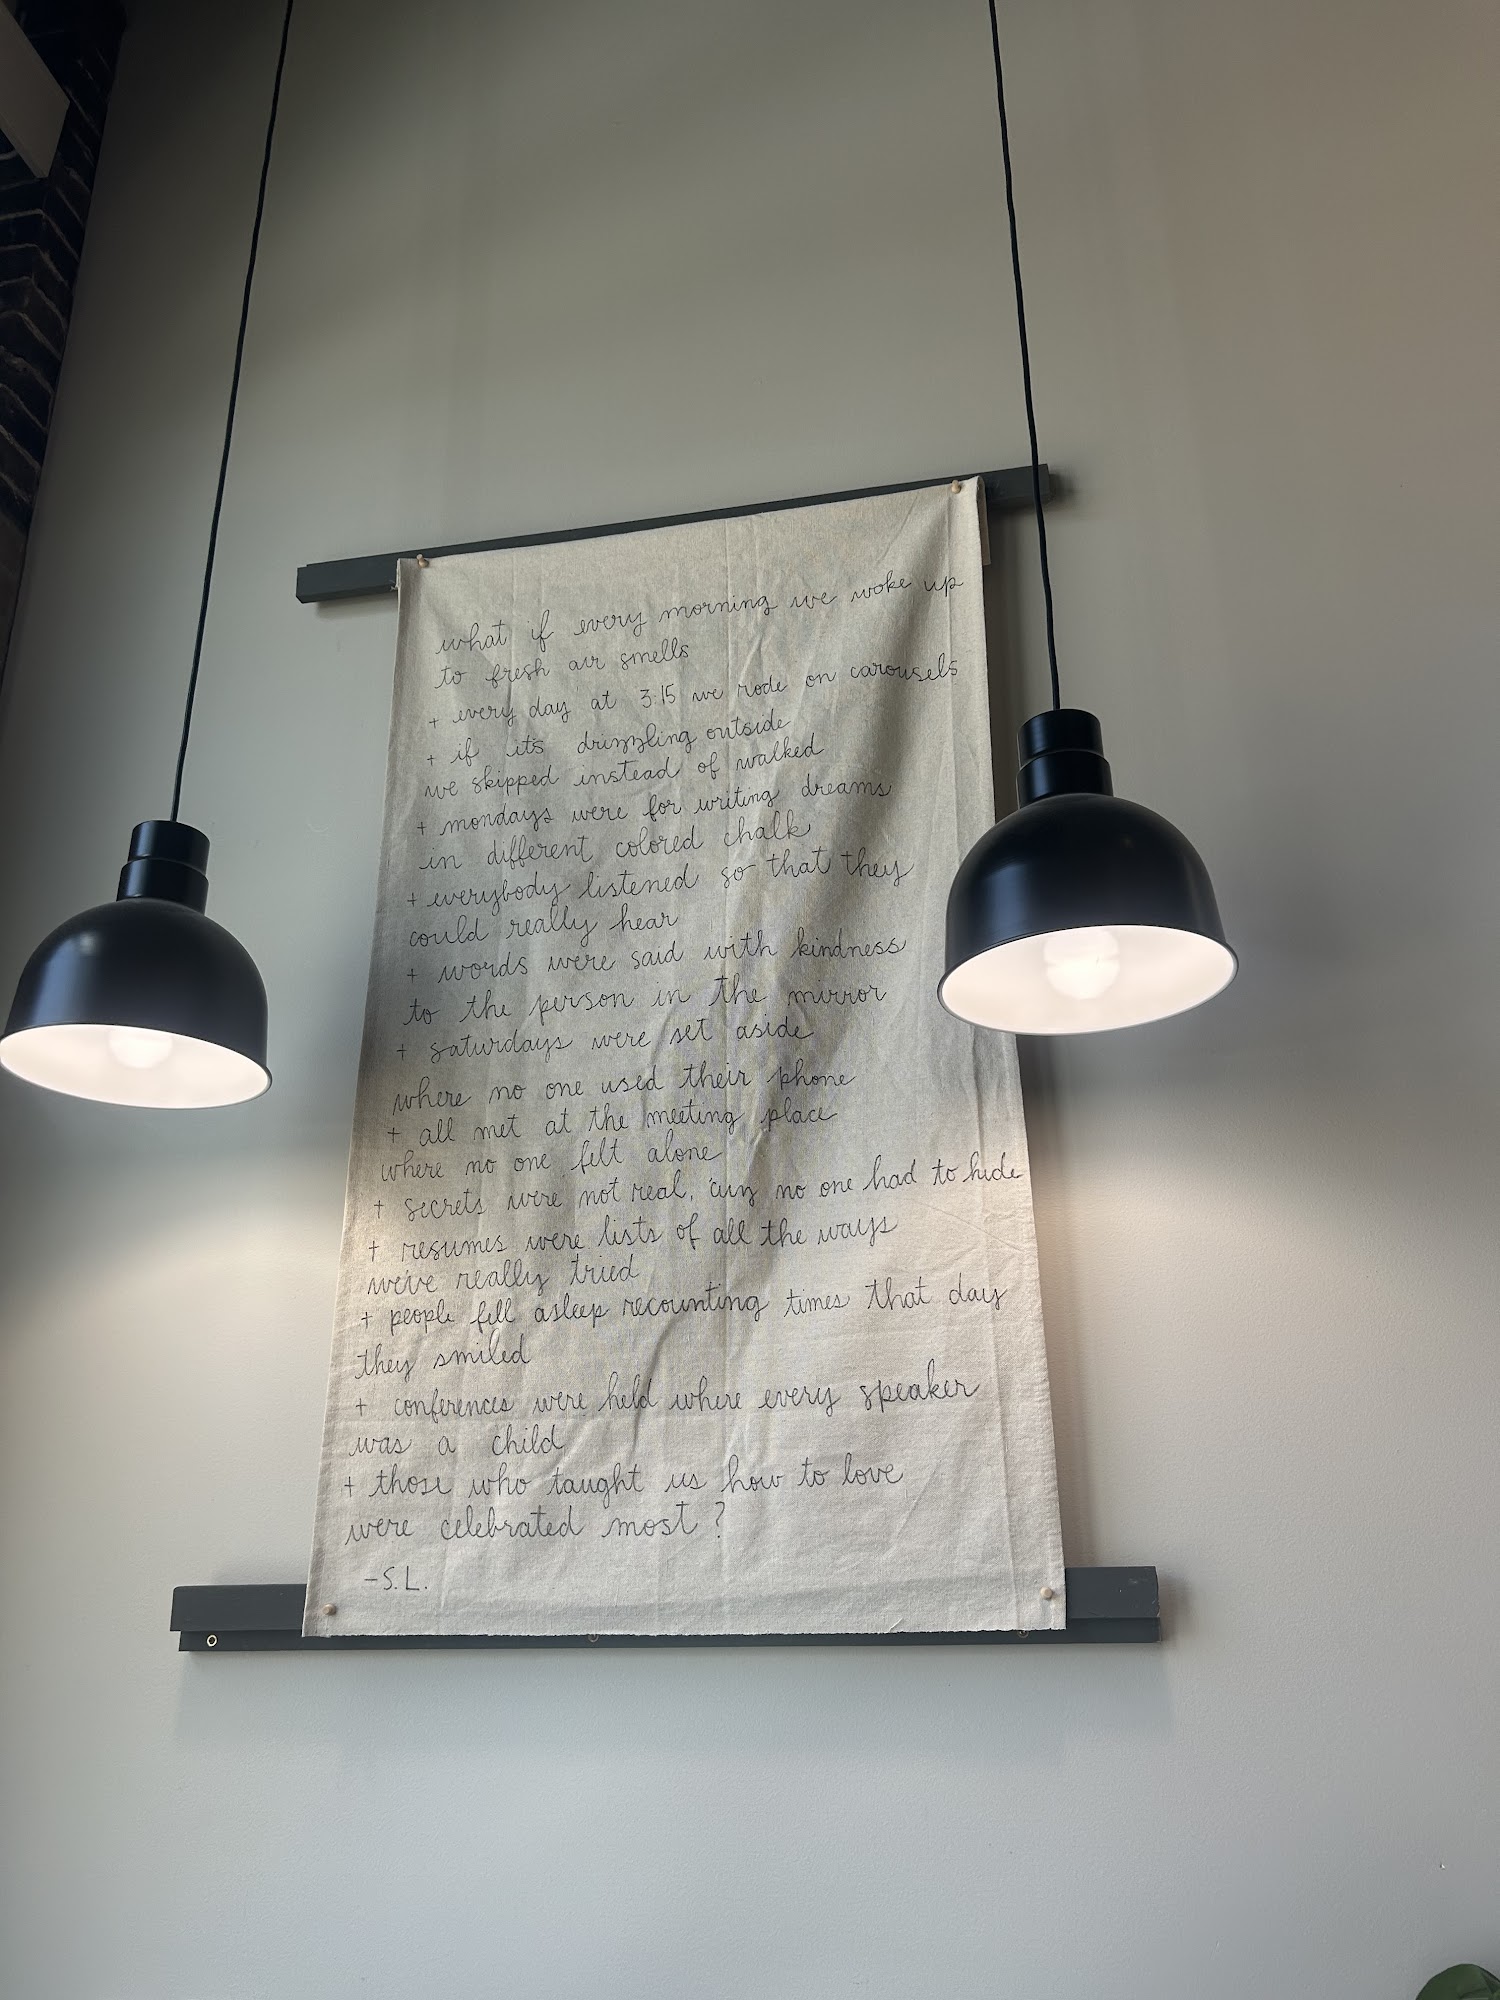 what if every morning we woke up
to fresh air smells
+ every day at 3:15 we rode on carousels
+ if it's drizzling outside
we skipped instead of walked
+ mondays were for writing dreams
in different colored chalk
+ everybody listened so that they
could really hear
+ words were said with kindness
to the person in the mirror
+ saturdays were set aside
where no one used their phone
+ all met at the meeting place
where no one felt alone
+ secrets were not real, 'cuz no one had to hide
+ resumes were lists of all the ways
we've really tried
+ people fell asleep recounting times that day
they smiled
+ conferences were held where every speaker
was a child
+ those who taught us how to love
were celebrated most?
-S.L.